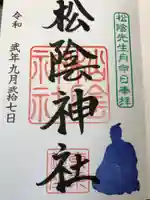 松陰先生月命日奉拝
松陰神社
令和
弐年九月弐拾七日